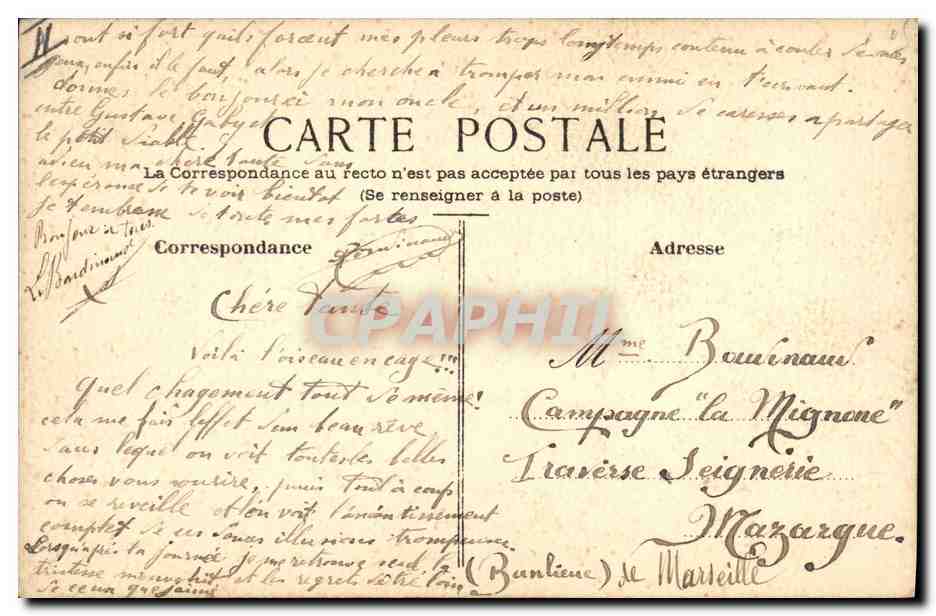 CARTE POSTALE
La Correspondance au recto n'est pas acceptée par tous les pays étrangers
(Se renseigner à la poste)
Correspondance
Adresse
CPAPHIL
Chére Tante
Voilà l'oiseau en cage!!!
Quel chagement tout de même!
cela me fais l'effet d'un beau rêve
dans leque on voit toutes les belles
choses vous sourire, puis tout à coup
on se reveille et l'on voit l'anéantissement
complet de ses illusions trompeuse.
Lorsqu'après la journée je me retrouve seul, la
tristesse et les regrets d'être loin
de ceux que j'aime
sont si fort qu'ils forcent mes pleurs trop longtemps contenu à couler de mes
yeux, enfin il le faut, alors je cherche à tromper mon ennui en t'ecrivant.
donnes le bonjour à mon oncle, et un million de caresses a partager
entre Gustave, Gaby et
le petit diable.
adieu ma chère tante dans
l'espérance de te voir bientot
je t'embrasse de toute mes forces
Bonjour à tous
Mme Baudinaud
Campagne "la Mignone"
Traverse Seignérie
Mazargue.
(Banlieue) de Marseille